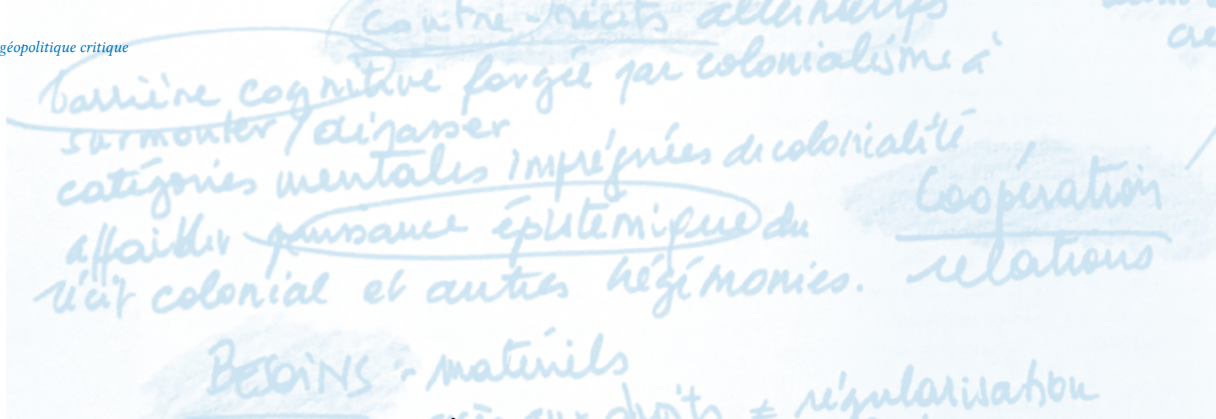 contre-récits alternatifs
géopolitique critique
barrière cognitive forgée par colonialisme à
surmonter / dépasser
catégories mentales imprégnées de colonialité
affaiblir puissance épistémique du
récit colonial et autres hégémonies.
Coopération
relations
BESOINS - matériels
aux droits ≠ régularisation